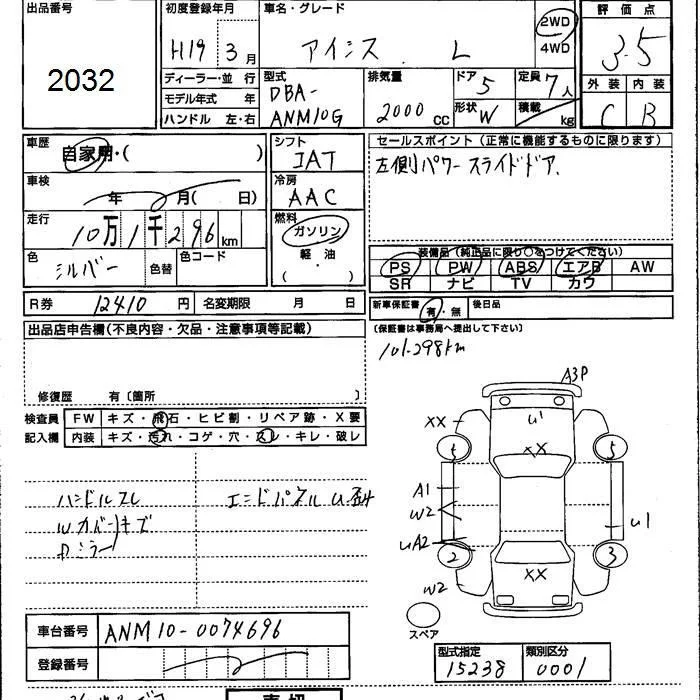 出品番号
2032
初度登録年月
H19 3月
車名・グレード
アイシス L
2WD
4WD
評価点
3.5
外装 内装
C B
ディーラー・並行
モデル年式 年
ハンドル 左・右
型式
DBA-
ANM10G
排気量
2000 CC
ドア
5
形状
W
定員
7人
積載
kg
車歴
自家用・( )
車検
年 月( 日)
走行
10万1千296km
色
シルバー
色替
色コード
シフト
IAT
冷房
AAC
燃料
ガソリン
軽・油
( )
セールスポイント(正常に機能するものに限ります)
左側パワースライドドア.
装備品(純正品に限り○をつけてください)
PS PW ABS エアB AW
SR ナビ TV カワ
R券 12410円 名変期限 月 日
新車保証書 有・無 後日品
(保証書は事務局へ提出して下さい)
101.298km
出品店申告欄(不良内容・欠品・注意事項等記載)
修復歴 有〔箇所 〕
検査員
記入欄
FW キズ・飛石・ヒビ割・リペア跡・X要
内装 キズ・汚れ・コゲ・穴・スレ・キレ・破レ
ハンドルスレ
Wカバーキズ
Dミラー
エンドパネルU歪
A3P
U1
XX
XX
5
5
A1
W2
U1
UA2
2
3
XX
W2
スペア
車台番号 ANM10-0074696
登録番号
型式指定
15238
類別区分
0001